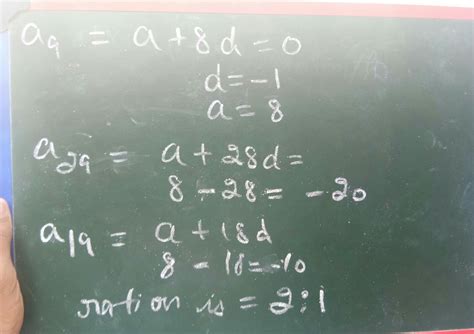 a₉ = a + 8d = 0
d = -1
a = 8
a₂₉ = a + 28d =
8 - 28 = -20
a₁₉ = a + 18d
8 - 18 = -10
ration is = 2:1